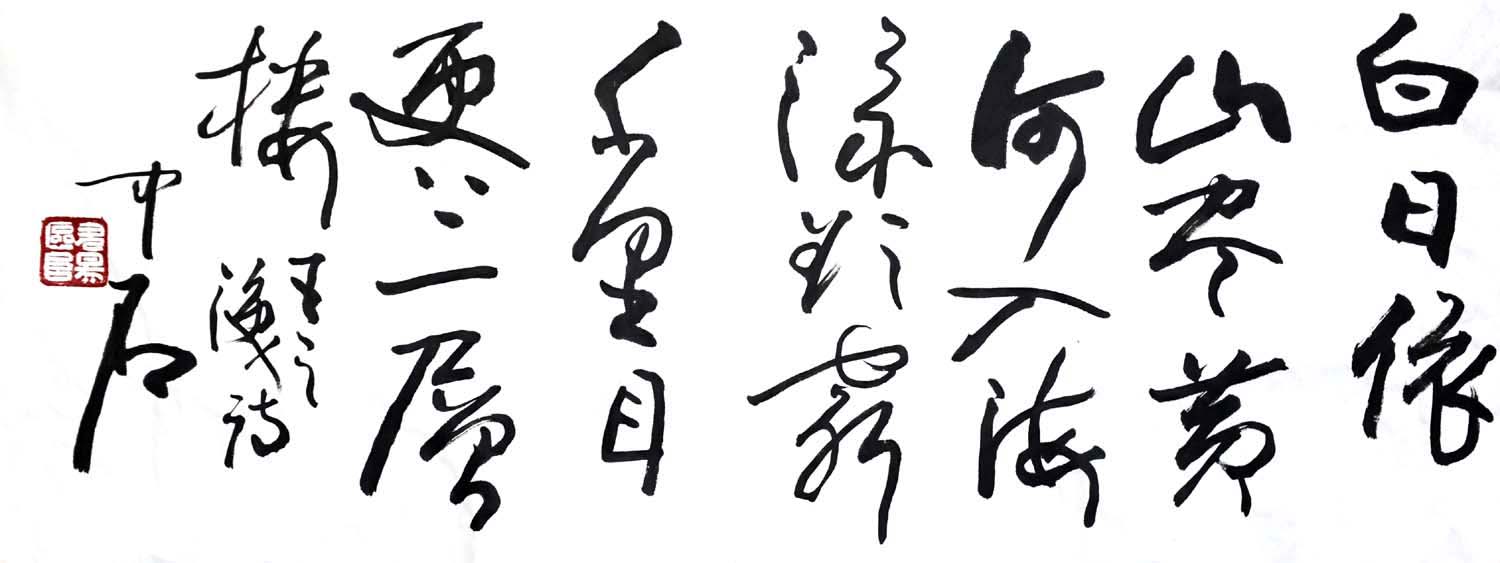 白日依
山尽黄
河入海
流欲窮
千里目
更上一層
楼
王之
涣诗
中石